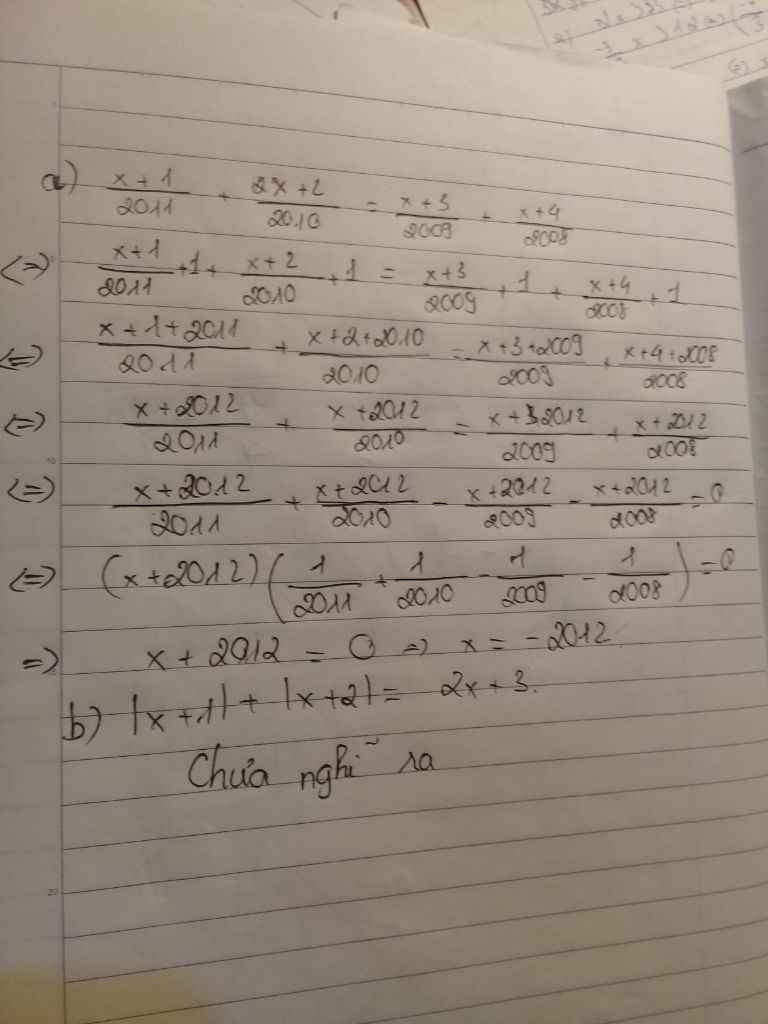 a) x+1/2011 + 2x+2/2010 = x+3/2009 + x+4/2008
<=> x+1/2011 +1+ x+2/2010 +1 = x+3/2009 + 1 + x+4/2008 + 1
<=> x+1+2011/2011 + x+2+2010/2010 = x+3+2009/2009 + x+4+2008/2008
<=> x+2012/2011 + x+2012/2010 = x+2012/2009 + x+2012/2008
<=> x+2012/2011 + x+2012/2010 - x+2012/2009 - x+2012/2008 = 0
<=> (x+2012)(1/2011 + 1/2010 - 1/2009 - 1/2008) = 0
=> x + 2012 = 0 => x = -2012
b) |x+1| + |x+2| = 2x+3.
Chưa nghĩ ra
20